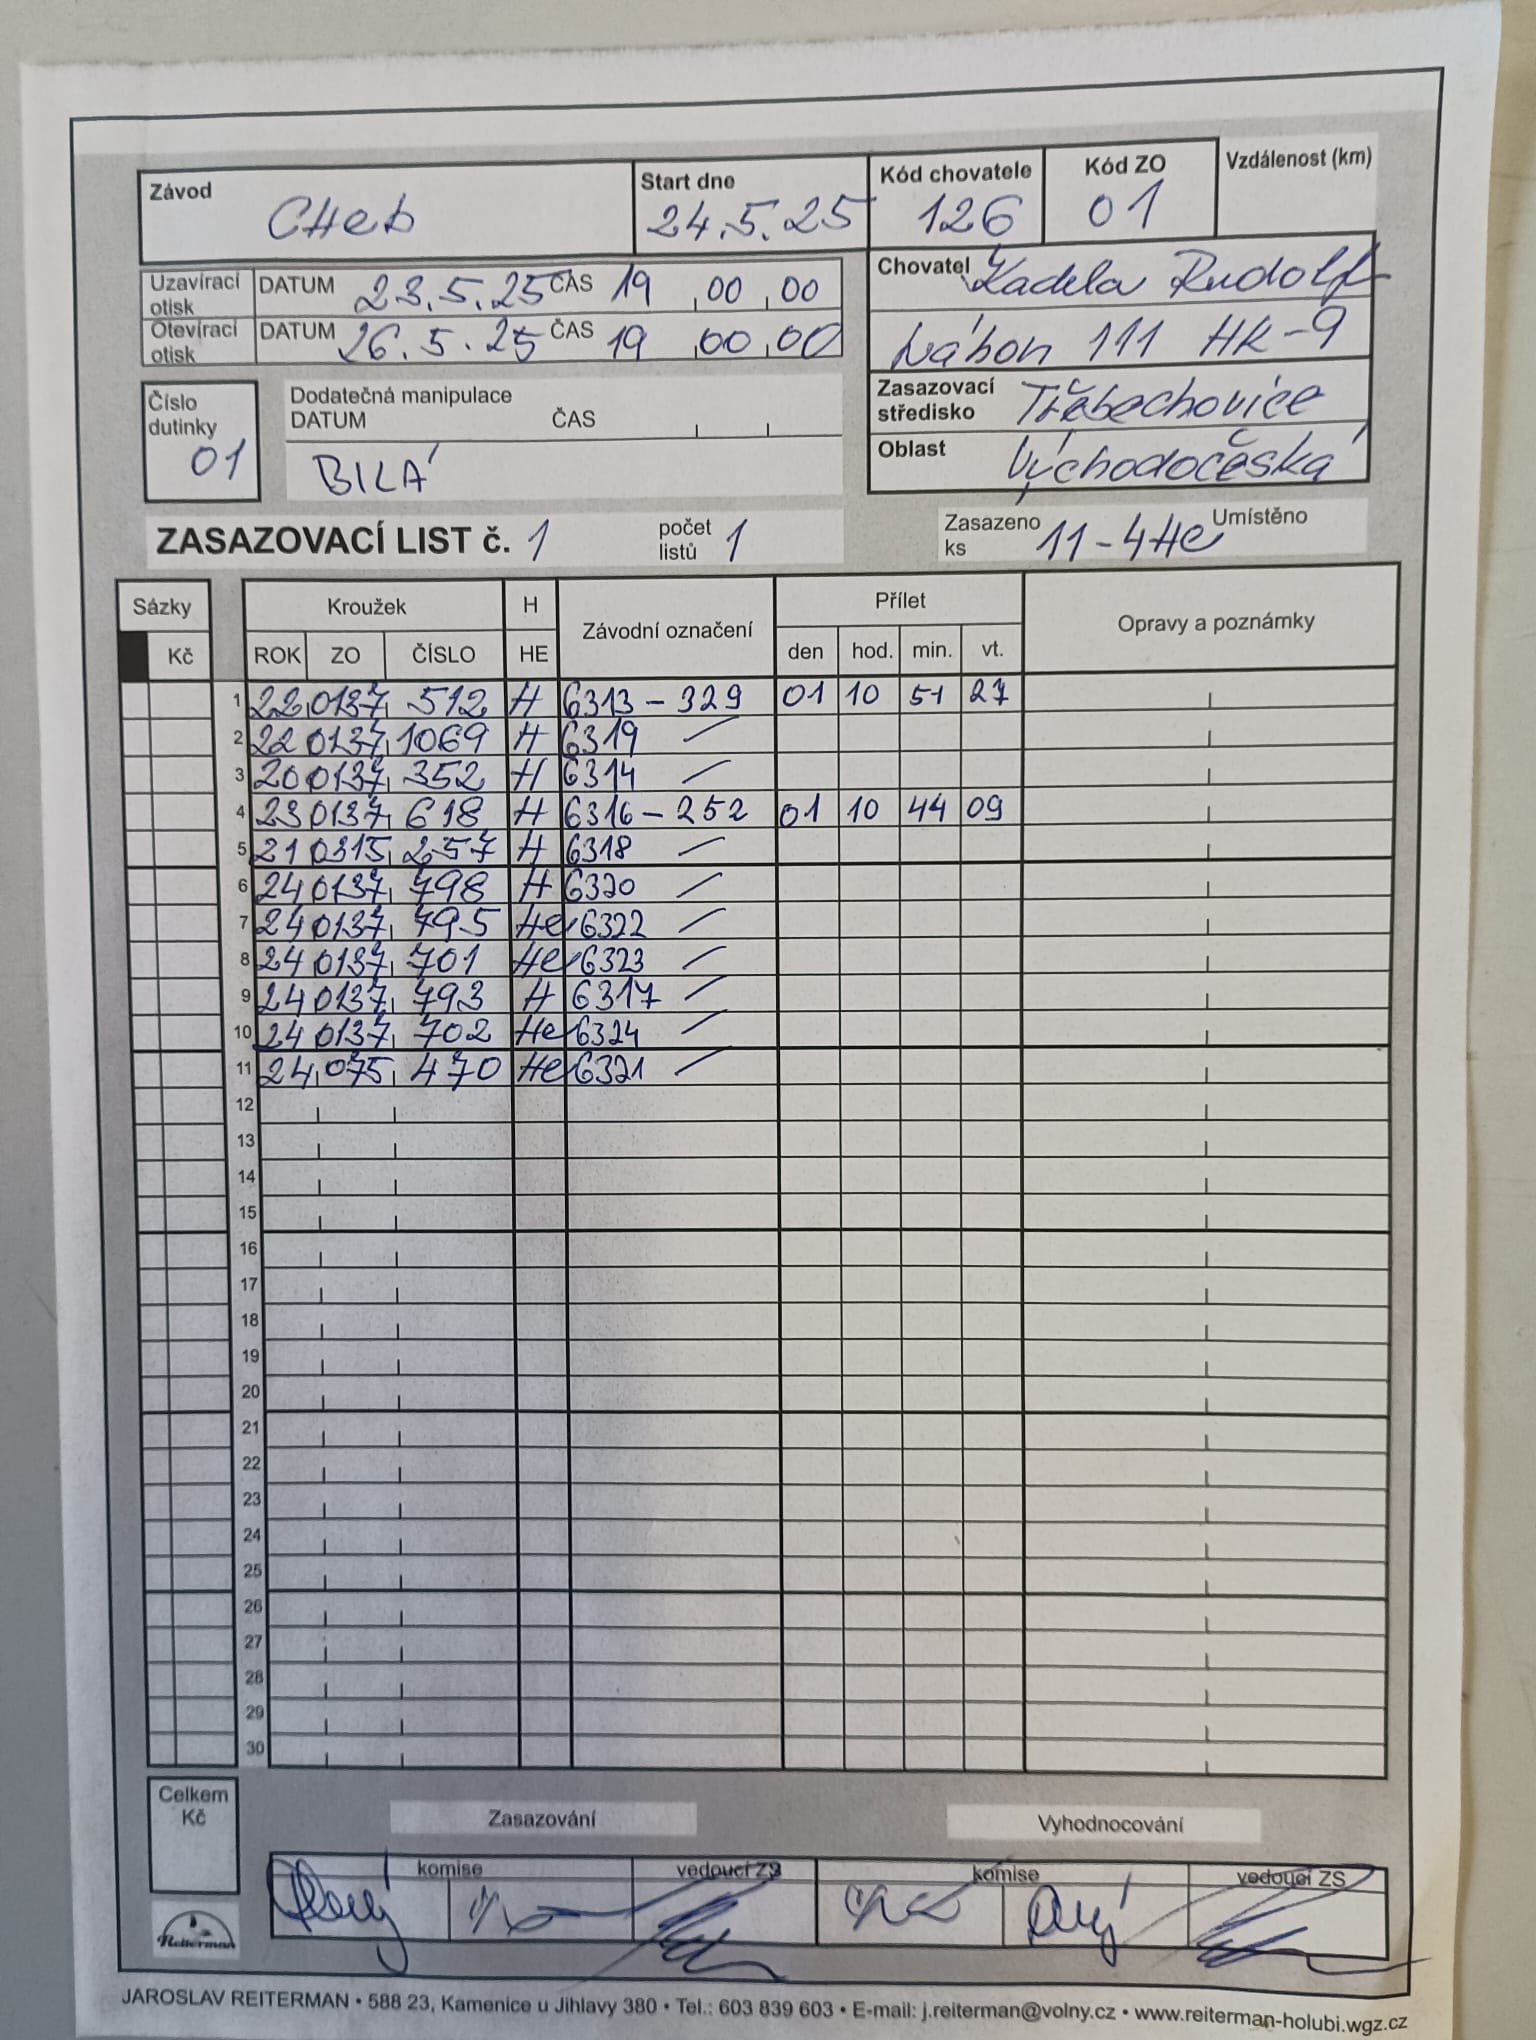 Závod CHeb Start dne 24.5.25 Kód chovatele 126 Kód ZO 01 Vzdálenost (km)
Uzavírací otisk DATUM 23.5.25 ČAS 19 00 00
Otevírací otisk DATUM 26.5.25 ČAS 19 00 00
Chovatel Kadela Rudolf
Nábon 111 HK-9
Zasazovací středisko Třebechovice
Oblast Východočeská
Číslo dutinky 01
Dodatečná manipulace
DATUM ČAS
BILÁ
ZASAZOVACÍ LIST č. 1 počet listů 1 Zasazeno ks 11-4He Umístěno
Sázky Kroužek H Závodní označení Přílet Opravy a poznámky
Kč ROK ZO ČÍSLO HE den hod. min. vt.
1 22 0137 512 H 6313 - 329 01 10 51 27
2 22 0137 1069 H 6319 —
3 20 0137 352 H 6314 —
4 23 0137 618 H 6316 - 252 01 10 44 09
5 21 0315 257 H 6318 —
6 24 0137 798 H 6320 —
7 24 0137 795 He 6322 —
8 24 0137 701 He 6323 —
9 24 0137 793 H 6317 —
10 24 0137 702 He 6324 —
11 24 075 470 He 6321 —
12
13
14
15
16
17
18
19
20
21
22
23
24
25
26
27
28
29
30
Celkem Kč
Zasazování Vyhodnocování
komise vedoucí ZS komise vedoucí ZS
Reiterman
JAROSLAV REITERMAN • 588 23, Kamenice u Jihlavy 380 • Tel.: 603 839 603 • E-mail: j.reiterman@volny.cz • www.reiterman-holubi.wgz.cz